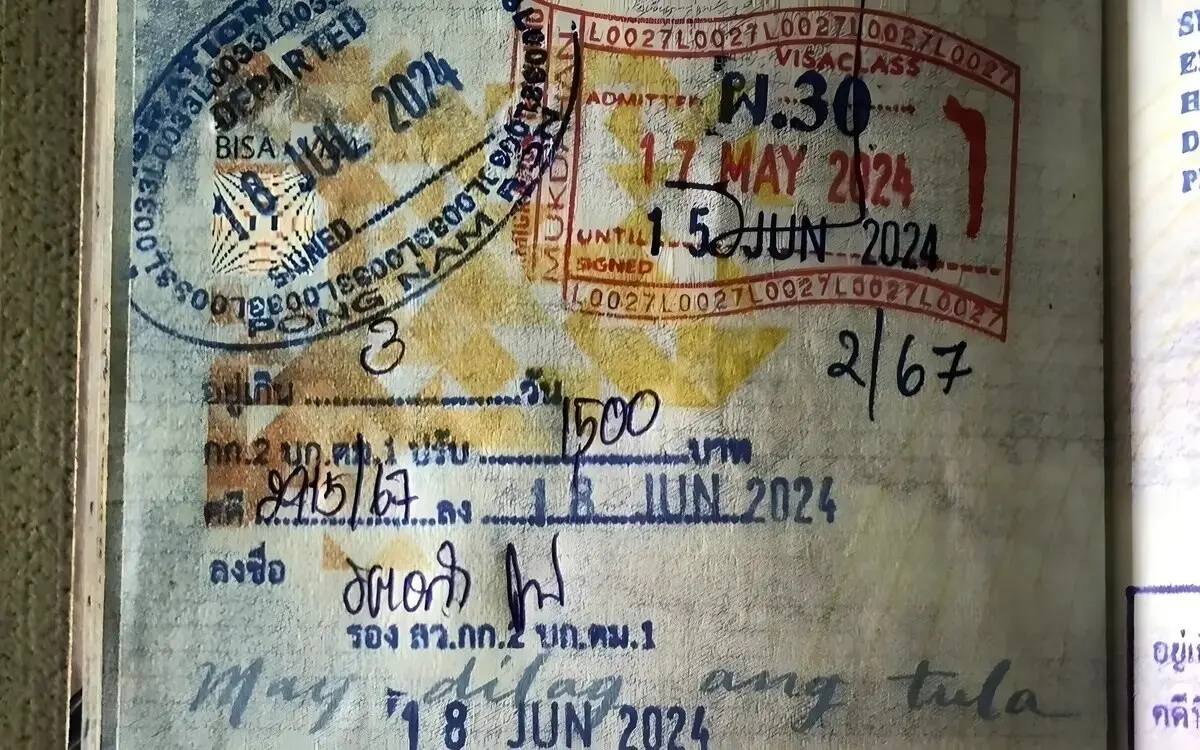 DEPARTED
18 JUL 2024
BISA
SIGNED
PONG NAM RON
L0027L0027L0027L0027L0027L0027
VISACLASS
ผ.30
ADMITTED
17 MAY 2024
UNTIL 15 JUN 2024
SIGNED
MUKDAHAN
L0027L0027L0027L0027L0027L0027
2/67
อยู่เกิน 3 วัน
กก.2 บก.ตม.1 ปรับ 1500 บาท
คดี 2915/67 ลง 18 JUN 2024
ลงชื่อ
รอง สว.กก.2 บก.ตม.1
May dilag ang tula
18 JUN 2024